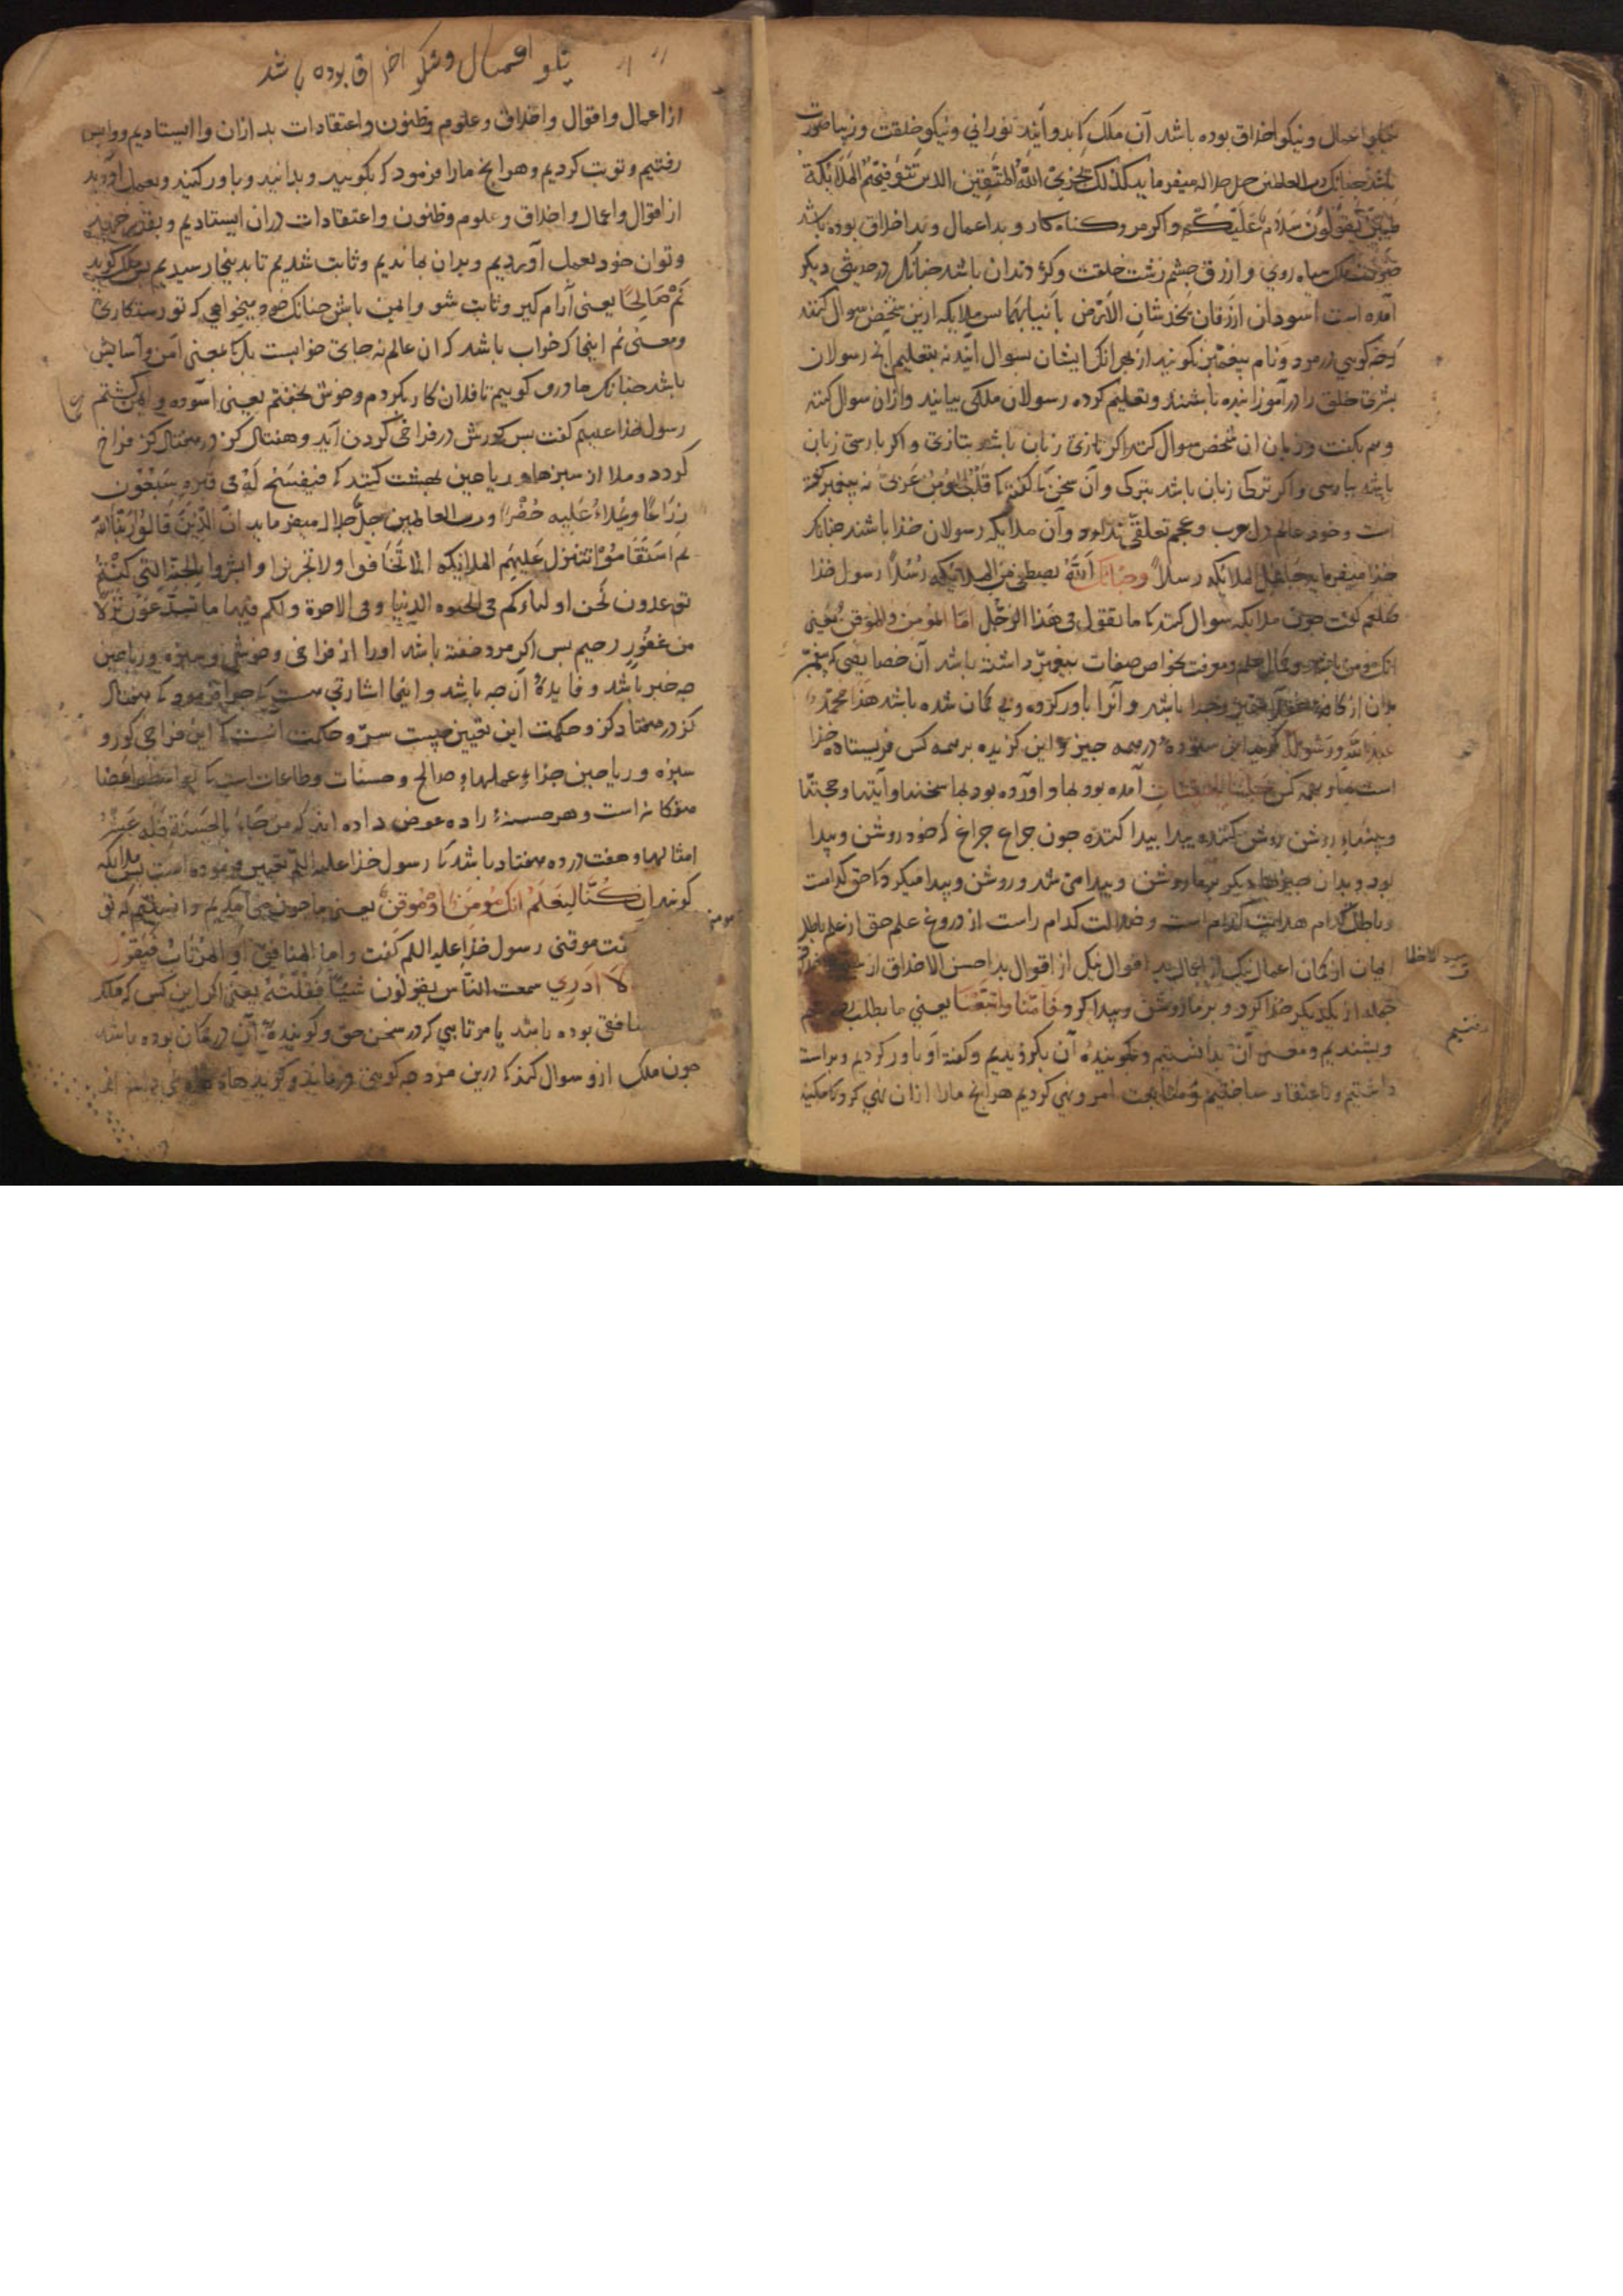 اعمال ونیکو اخلاق بوده باشد آن ملک که بدو آیند نورانی ونیکو خلقت وزیبا صورت
باشد چنانک رب العالمین جل جلاله میفرماید کذلک یجزی الله المتقین الذین تتوفیهم الملائکة
طیبین یقولون سلام علیکم واکر مرد کناه کار و بد اعمال وبد اخلاق بوده باشد
سیاه روی و ازرق چشم زشت خلقت وکژ دندان باشد چنانک در حدیثی دیکر
آمده است اسودان ازرقان یخدشان الارض بانیابهما پس ملایکه ازین شخص سوال کنند
که چه کویی درمرد ونام پیغمبر نکویند از بهر آنک ایشان بسوال آیند نه بتعلیم آنچ رسولان
بشری خلق را در آموزانیده باشند وتعلیم کرده رسولان ملکی بیایند وازان سوال کنند
وهم بلغت وزبان ان شخص سوال کنند اکر تازی زبان باشد بتازی و اکر پارسی زبان
باشد بپارسی واکر ترکی زبان باشد بترکی وآن سخن که کفته که قلب المومن عربی نه پیغمبر کفته
است وخود عالم دل عرب وعجم تعلقی ندارد وآن ملایکه رسولان خدا باشند چنانک
خدا میفرماید جاعل الملایکه رسلا وچنانک الله یصطفی من الملائیکه رسلا رسول خدا
صلعم کفت چون ملایکه سوال کنند که ما تقول فی هذا الرجل اما المومن والموقن یعنی
انک مومن باشد وبکمال علم ومعرفت بخواص صفات پیغمبر داشته باشد آن خصایصی که پیغمبر
بدان از کافه خلق متمیز وجدا باشد وآنرا باور کرده وبی کمان شده باشد هذا محمد
عبد الله ورسوله کوید این ستوده در همه چیز واین کزیده بر همه کس فریستاده خدا
است بما وبهمه کس جاءنا بالبینات آمده بود بما و آورده بود بما سخنها وآیتها وحجتها
وچشمهاء روشن روشن کننده پیدا پیدا کننده چون چراغ چراغ که خود روشن وپیدا
بود وبدان چیزها دیکر بر ما روشن وپیدا می شد وروشن وپیدا میکرد که حق کدامست
وباطل کدام هدایت کدام است وضلالت کدام راست از دروغ علم حق از علم باطل
ایمان از کمان اعمال نیک از اعمال بد اقوال نیک از اقوال بد احسن الاخلاق از
جمله از یکدیکر جدا کرد وبر ما روشن وپیدا کرد فآمنا واتبعنا یعنی ما بطلب
وبشنیدیم ومعنی آن بدانستیم وبکویندهٔ آن بکرویدیم وکفتهٔ او باور کردیم وبراست
داشتیم وبا اعتقاد ساختیم ومتابعت امر ونهی کردیم هرانچ مارا ازان نهی کرد که مکنید
رفتیم
نیکو اعمال ونیکو اخلاق بوده باشد
از اعمال واقوال واخلاق وعلوم وظنون واعتقادات بد ازان وا ایستادیم وواپس
رفتیم وتوبت کردیم وهرانچ مارا فرمود که بکویید وبدانید وباور کنید وبعمل آورید
از اقوال واعمال واخلاق وعلوم وظنون واعتقادات دران ایستادیم وبقدر
وتوان خود بعمل آوردیم وبران ماندیم وثابت شدیم تا بدینجا رسیدیم
نم صالحا یعنی آرام کیر وثابت شو وایمن باش چنانک خود میخواهی که تو رستکاری
ومعنی نم اینجا نه خواب باشد که ان عالم نه جای خوابست بلک بمعنی امن وآسایش
باشد چنانک ما دری کوییم تا فلان کار بکردم وخوش بخفتم یعنی آسوده و ایمن کشتم
رسول خدا علیلم کفت پس کورش در فراخی کردن آید وهفتاد کز درهفتاد کز فراخ
کردد وملا از سبزها وریاحین بهشت کنند که فیفسح له فی قبره سبعون
ذراعا ویملاء علیه خضرا ورب العالمین جل جلاله میفرماید ان الذین قالوا ربنا الله
ثم استقاموا تتنزل علیهم الملائیکه الا تخافوا ولا تحزنوا وابشروا بالجنة التی کنتم
توعدون نحن اولیاءکم فی الحیوه الدنیا وفی الاخرة ولکم فیها ما تدعون نزلا
من غفور رحیم پس اکر مرد خفته باشد اورا از فراخی وخوشی وسبزه وریاحین
چه خبر باشد وفایدهٔ آن چه باشد واینجا اشارتی هست که چرا فرمود که هفتاد
کز درهفتاد کز وحکمت این تعیین چیست سر وحکمت آنست که این فراخی کور و
سبزه وریاحین جزاء عملهاء صالح وحسنات وطاعات است که بواسطه اعضا
هفتکانه است وهر حسنهٔ را ده عوض داده اند که من جاء بالحسنة فله عشر
امثالها وهفت در ده هفتاد باشد که رسول خدا علیه السلم تعیین فرموده است پس ملایکه
کویند ان کنا لنعلم انک مومن او موقن یعنی ما چون می آمدیم دانستیم که تو
موقنی رسول خدا علیه السلم کفت واما المنافق او المرتاب فیقول
لا ادری سمعت الناس یقولون شیئا فقلته یعنی اکر این کس که ملک
منافقی بوده باشد یا مرتابی که در سخن حق وکویندهٔ آن در کمان بوده باشد
چون ملک ازو سوال کند که درین مرد چه کویی فرماند وکوید هاه هاه
مومن